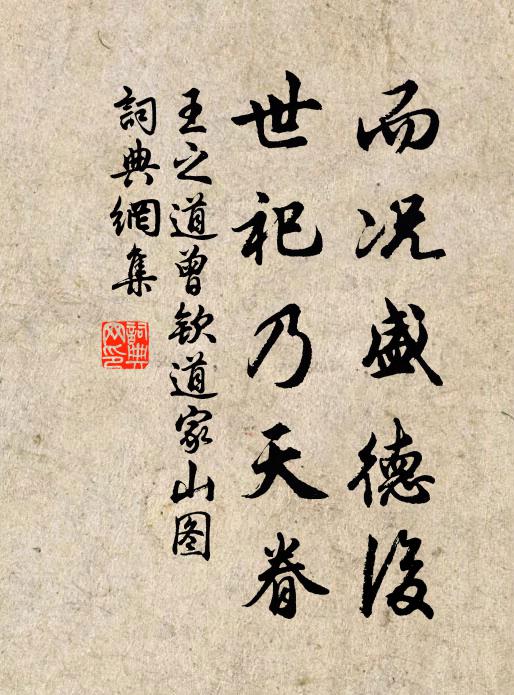 而况盛德後
世祀乃天眷
王之道曾钦道家山图
詞典網集
詞典網印